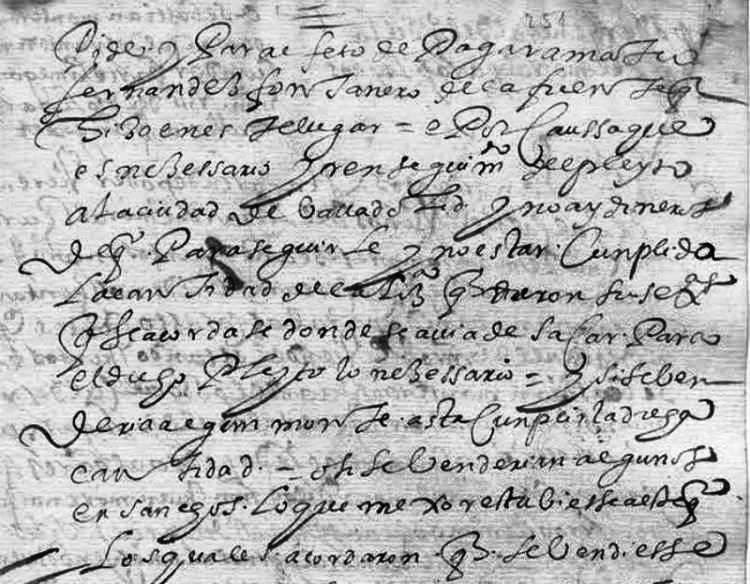 251
Pide y Para e feto de Pagar a martin
fernandez fontanero de la fuente q
hiço en este lugar = e Por Caussa que
es nezessario yr en seguimiº de pleyto
a la ciudad de Vallid y no ay dineros
de q. Para seguirle y no estar Cunplida
La cantidad de la lizª q dieron sus
q se acordase donde se avia de sacar Para
el dicho Pleyto lo nezessario = y si se ven
deria algun monte asta Cunplir la dicha
cantidad = o si se Venderian algunos
ensanchos. Lo que mexor estubiesse a este
Los quales acordaron q. se Vendiesse